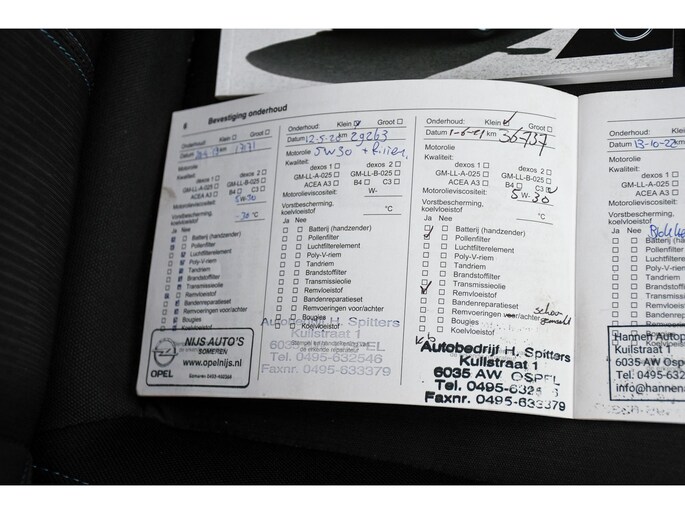 6 Bevestiging onderhoud
Onderhoud: Klein Groot
Datum km 17171
Motorolie
Kwaliteit:
dexos 1 dexos 2
GM-LL-A-025 GM-LL-B-025
ACEA A3 B4 C3
Motorolieviscositeit:
5W-30
Vorstbescherming,
koelvloeistof
-30 °C
Ja Nee
Batterij (handzender)
Pollenfilter
Luchtfilterelement
Poly-V-riem
Tandriem
Brandstoffilter
Transmissieolie
Remvloeistof
Bandenreparatieset
Remvoeringen voor/achter
Bougies
Koelvloeistof
NIJS AUTO'S
SOMEREN
www.opelnijs.nl
OPEL
Onderhoud: Klein Groot
Datum 12-5-20 km 29263
Motorolie 5W30
Kwaliteit:
dexos 1 dexos 2
GM-LL-A-025 GM-LL-B-025
ACEA A3 B4 C3
Motorolieviscositeit:
W-
Vorstbescherming,
koelvloeistof °C
Ja Nee
Batterij (handzender)
Pollenfilter
Luchtfilterelement
Poly-V-riem
Tandriem
Brandstoffilter
Transmissieolie
Remvloeistof
Bandenreparatieset
Remvoeringen voor/achter
Bougies
Koelvloeistof
Autobedrijf H. Spitters
Kuilstraat 1
6035 AW OSPEL
Tel. 0495-632546
Faxnr. 0495-633379
Onderhoud: Klein Groot
Datum 1-6-21 km 36737
Motorolie
Kwaliteit:
dexos 1 dexos 2
GM-LL-A-025 GM-LL-B-025
ACEA A3 B4 C3
Motorolieviscositeit:
5 W-30
Vorstbescherming,
koelvloeistof °C
Ja Nee
Batterij (handzender)
Pollenfilter
Luchtfilterelement
Poly-V-riem
Tandriem
Brandstoffilter
Transmissieolie
Remvloeistof
Bandenreparatieset
Remvoeringen voor/achter schoon gemaakt
Bougies
Koelvloeistof
Autobedrijf H. Spitters
Kuilstraat 1
6035 AW OSPEL
Tel. 0495-632546
Faxnr. 0495-633379
Onderhoud: Klein
Datum 13-10-22 km
Motorolie
Kwaliteit:
dexos 1
GM-LL-A-025
ACEA A3
Motorolieviscositeit:
Vorstbescherming,
koelvloeistof
Ja Nee
Batterij (hand
Pollenfilter
Luchtfilterele
Poly-V-riem
Tandriem
Brandstoffilter
Transmissie
Remvloeistof
Bandenrepa
Remvoering
Bougies
Hanneh Autop
Kuilstraat 1
6035 AW Osp
Tel. 0495-632
info@hannena